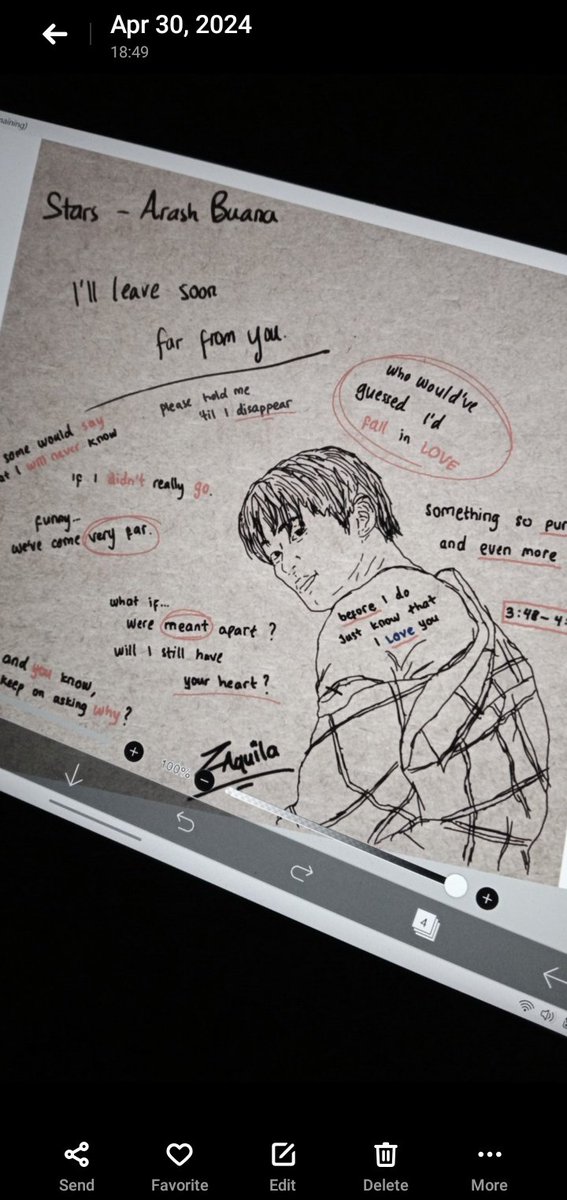 Apr 30, 2024
18:49
Stars - Arash Buana
I'll leave soon
far from you.
please hold me
'til I disappear
who would've
guessed I'd
fall in LOVE
some would say
I will never know
if I didn't really go.
funny...
we've come very far.
something so
and even more
what if...
were meant apart?
will I still have
your heart?
before I do
just know that
I love you
3:48-4:
and you know,
keep on asking why?
ZAquila
100%
4
Send
Favorite
Edit
Delete
More